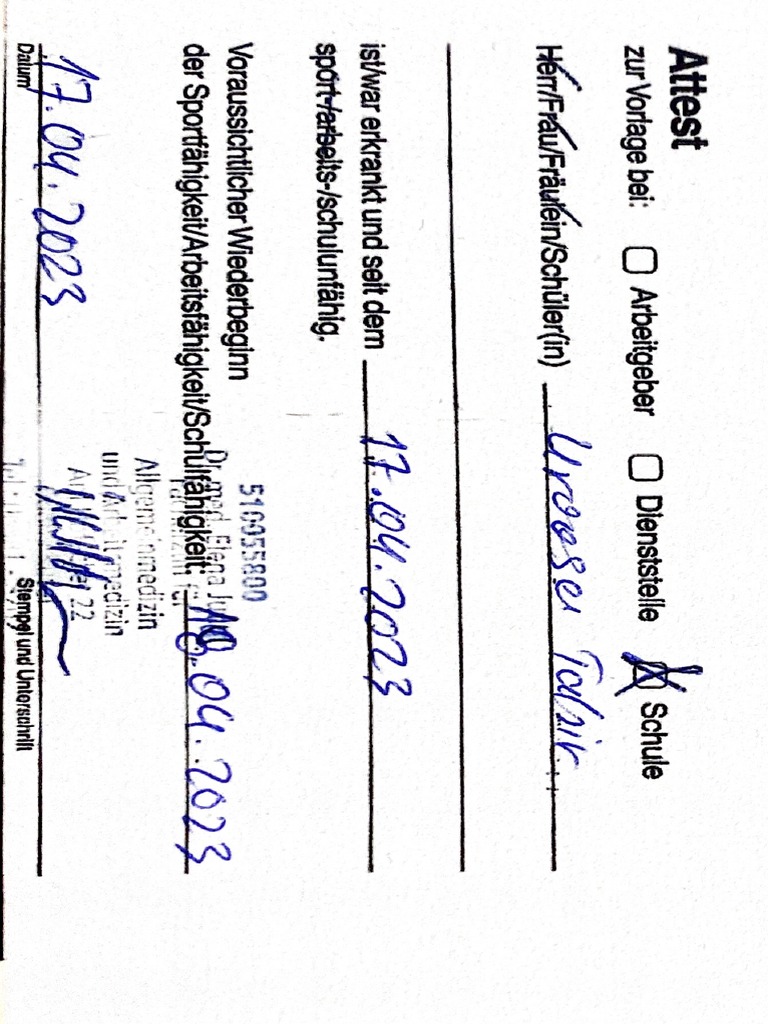 Attest
zur Vorlage bei: Arbeitgeber Dienststelle Schule
Herr/Frau/Fräulein/Schüler(in)
ist/war erkrankt und seit dem 17.04.2023
sport-/arbeits-/schulunfähig.
Voraussichtlicher Wiederbeginn
der Sportfähigkeit/Arbeitsfähigkeit/Schulfähigkeit: .04.2023
516055800
Dr. med. Elena
Allgemeinmedizin
17.04.2023
Datum Stempel und Unterschrift